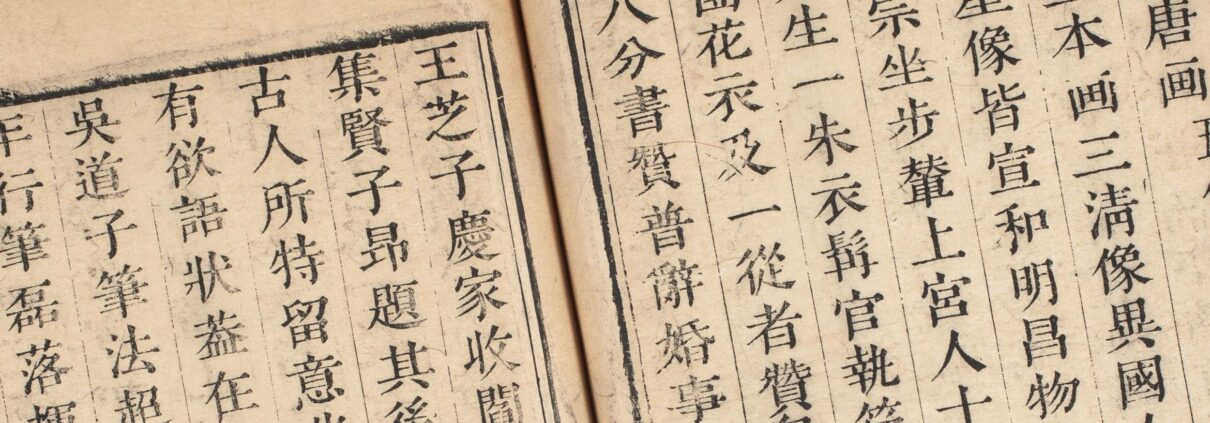 唐画
本画三清像異國
星像皆宣和明昌物
宗坐步輦上宮人十
生一朱衣髯官執笏
花衣及一從者贊
八分書贊普辭婚事
王芝子慶家收閻
集賢子昂題其後
古人所特留意
有欲語狀葢在
吳道子筆法超
年行筆磊落揮